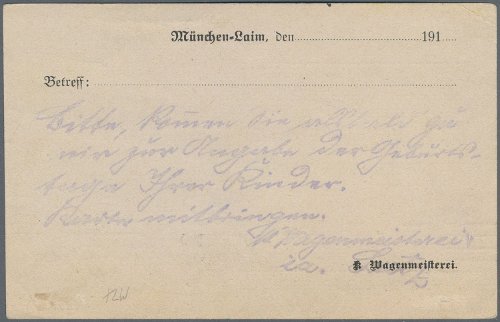 München-Laim, den 191
Betreff:
Bitte, kommen Sie alsbald zu
mir zur Angabe der Geburts-
tage Ihrer Kinder.
Karte mitbringen.
Wagenmeisterei
K Wagenmeisterei.